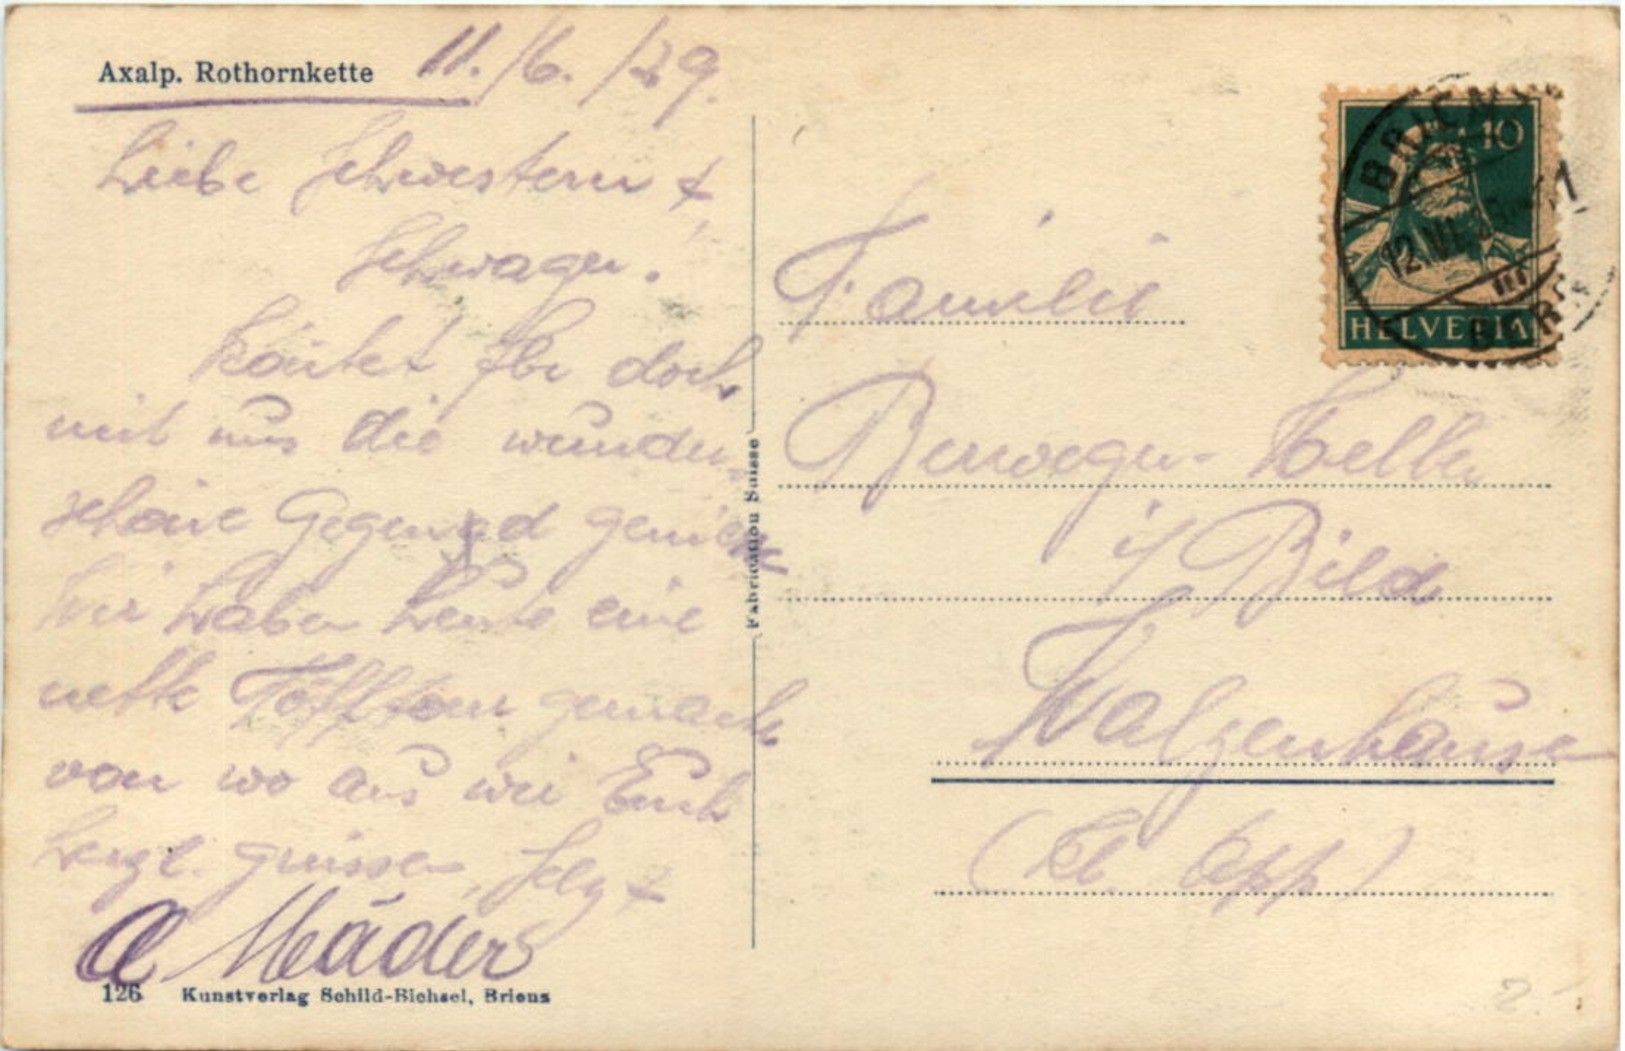 Axalp. Rothornkette 11./6./29.
Liebe Schwestern &
Schwager!
Könntet Ihr doch
mit uns die wunder-
schöne Gegend
Wir haben heute eine
nette Töfftour gemacht
von wo aus wir Euch
herzl. grüssen, &
A. Mäder
126 Kunstverlag Schild-Bichsel, Brienz
Fabrication Suisse
BRIENZ
12.VI.
10
HELVETIA
Familie
i/ Bild
Walzenhausen
(Kt. App)